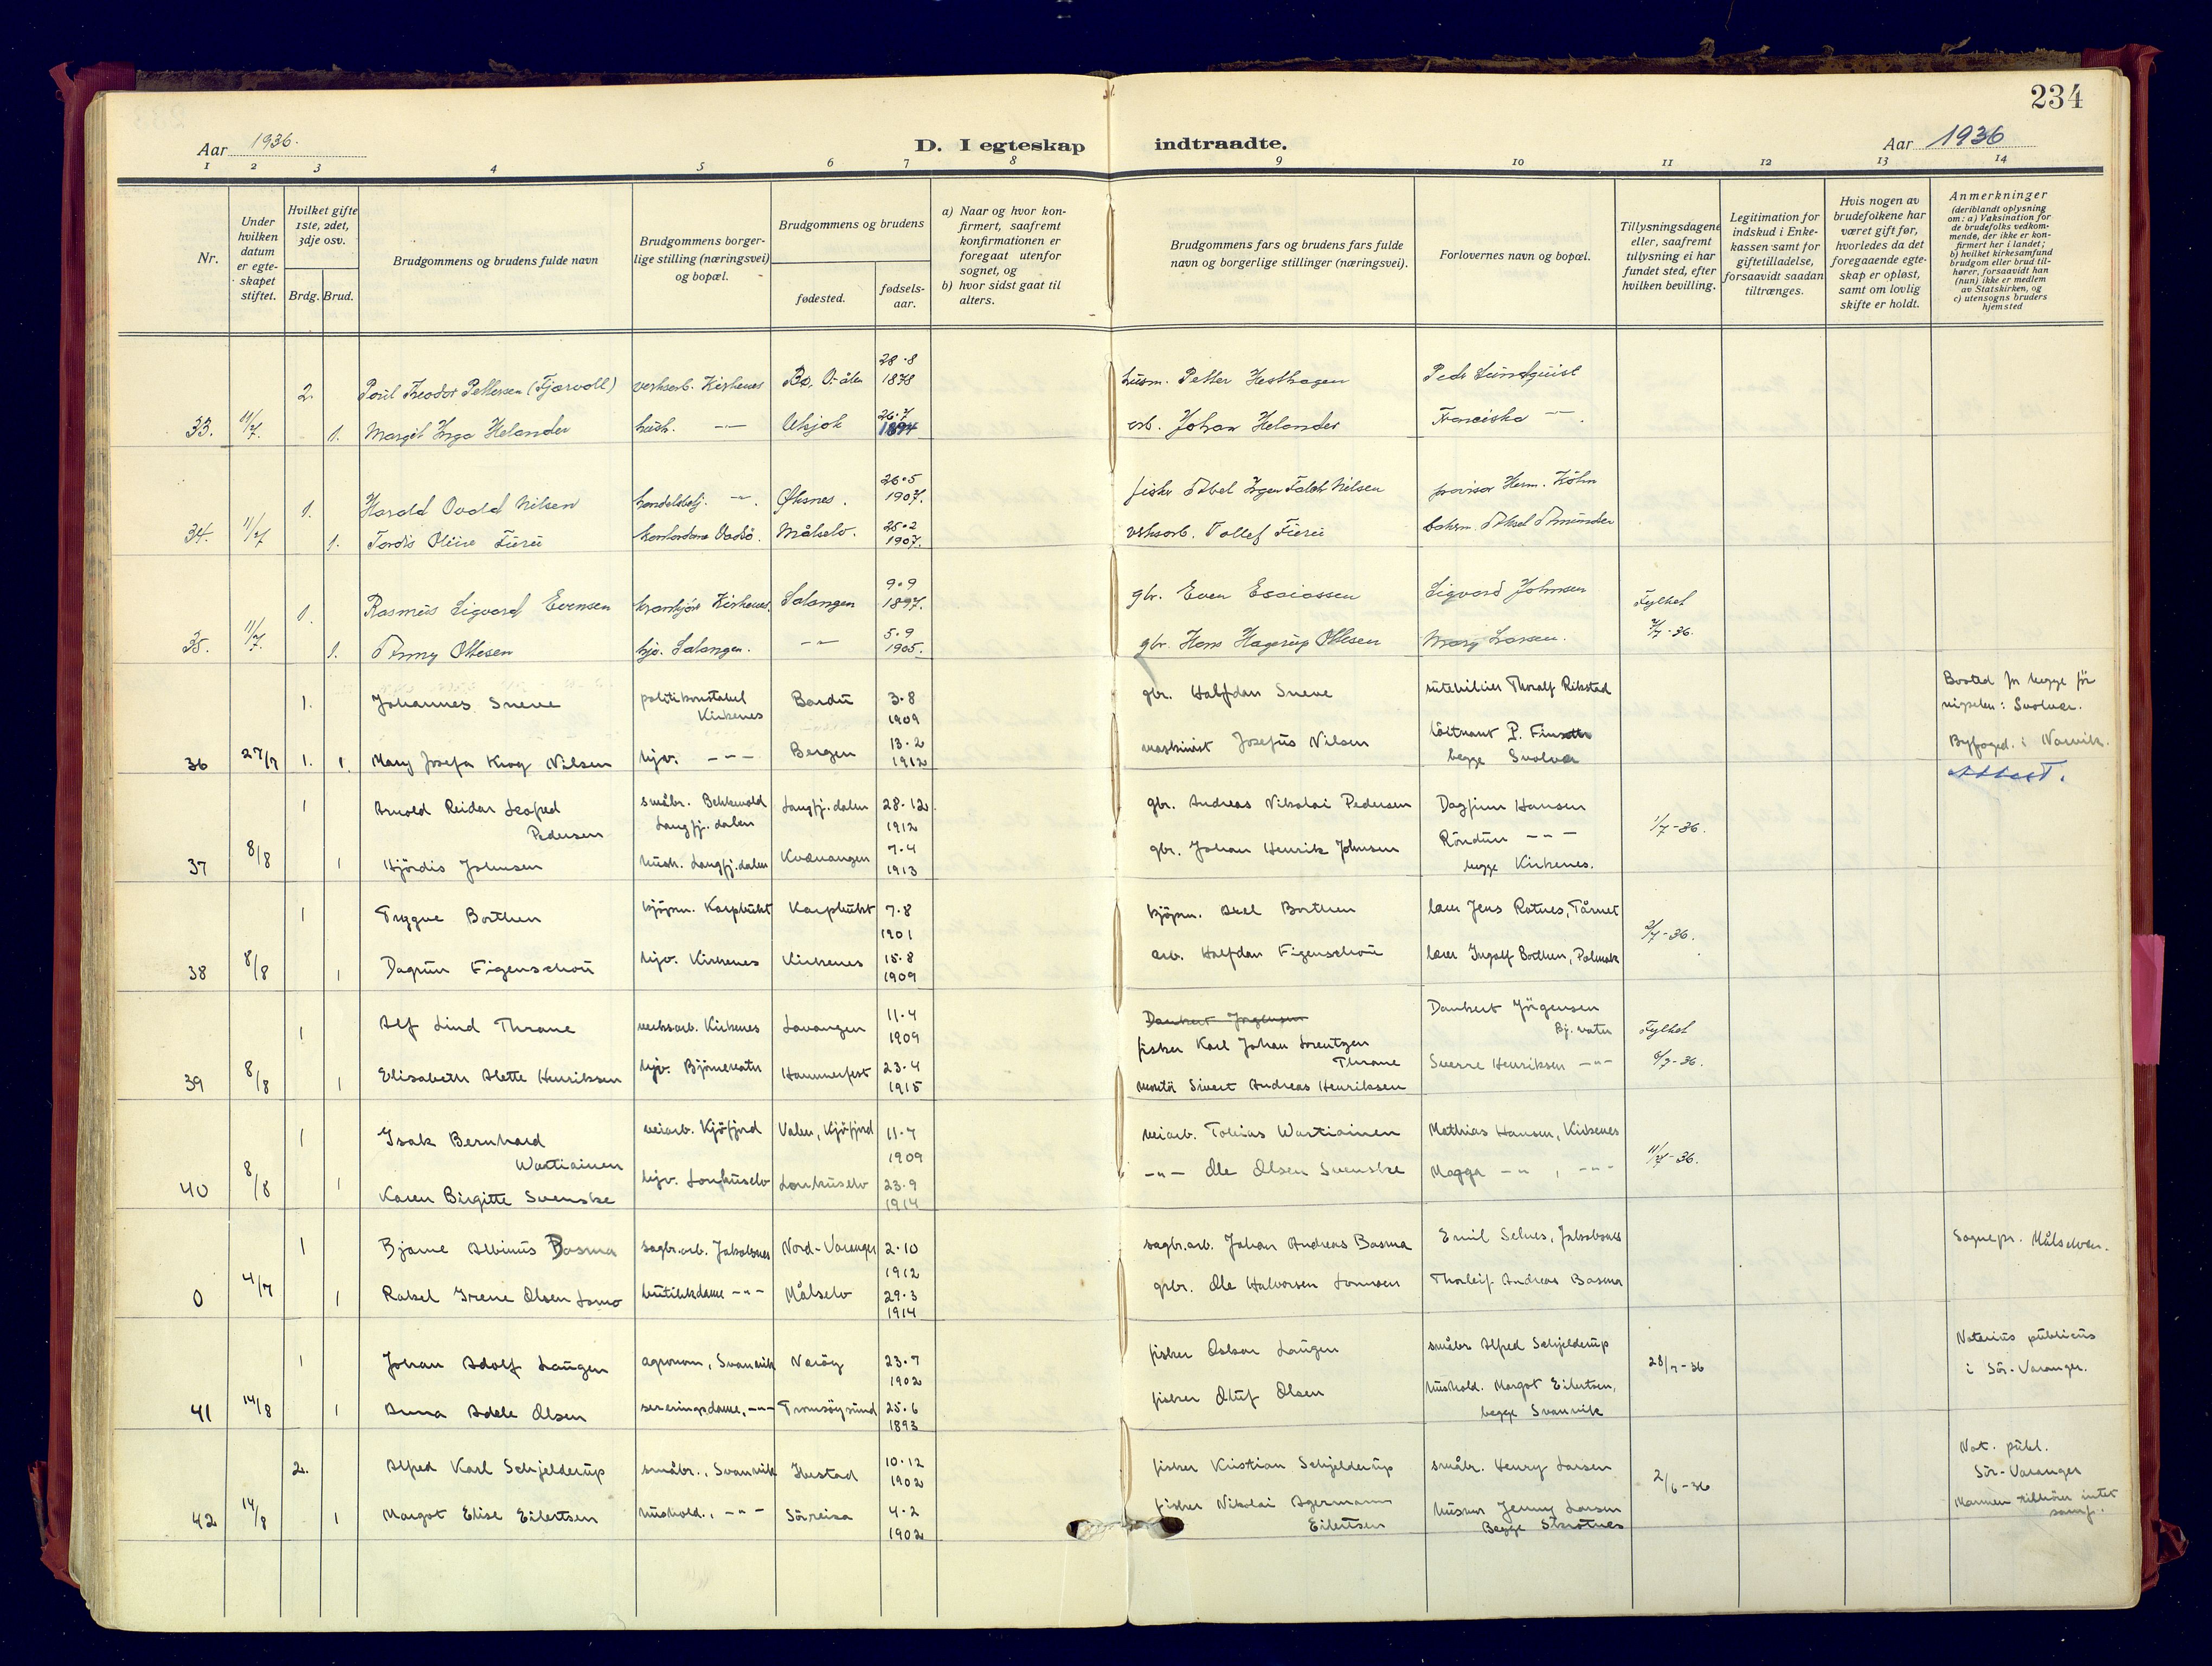 234
Aar 1936.
D. I egteskap indtraadte.
Aar 1936
1 2 3 4 5 6 7 8 9 10 11 12 13 14
Nr.
Under
hvilken
datum
er egte-
skapet
stiftet.
Hvilket gifte
1ste, 2det,
3dje osv.
Brdg. Brud.
Brudgommens og brudens fulde navn
Brudgommens borger-
lige stilling (næringsvei)
og bopæl.
Brudgommens og brudens
fødested.
fødsels-
aar.
a) Naar og hvor kon-
firmert, saafremt
konfirmationen er
foregaat utenfor
sognet, og
b) hvor sidst gaat til
alters.
Brudgommens fars og brudens fars fulde
navn og borgerlige stillinger (næringsvei).
Forlovernes navn og bopæl.
Tillysningsdagene
eller, saafremt
tillysning ei har
fundet sted, efter
hvilken bevilling.
Legitimation for
indskud i Enke-
kassen samt for
giftetilladelse,
forsaavidt saadan
tiltrænges.
Hvis nogen av
brudefolkene har
været gift før,
hvorledes da det
foregaaende egte-
skap er opløst,
samt om lovlig
skifte er holdt.
Anmerkninger
(deriblandt oplysning
om: a) Vaksination for
de brudefolks vedkom-
mende, der ikke er kon-
firmert her i landet;
b) hvilket kirkesamfund
brudgom eller brud til-
hører, forsaavidt han
(hun) ikke er medlem
av Statskirken, og
c) utensogns bruders
hjemsted
2. Paul Theodor Pettersen (Fjærvoll) verksarb. Kirkenes Bø, 28.8 1878 husm. Petter Hesthagen Peder Lundquist
33. 11/7. 1. Margit Inga Helander hush. -"- Utsjok 26.7 1894 arb. Johan Helander Franciska -"-.
1. Harald Osvald Nilsen handelsbetj. -"-. Øksnes. 26.5 1907. fisker Abel Falch Nilsen provisor Herm. Köhn
34. 11/7 1. Tordis Olive kontordame Vadsö. Målselv. 25.2 1907. verksarb. Tollef Aksel Amundsen
1. Rasmus Sigvard Evensen Kirkenes. Salangen 9.9 1897. gbr. Even Esaiassen Sigvard Johnsen Fylket
35. 11/7. 1. Anny Ottesen hjv. Salangen. -"- 5.9 1905. gbr. Hans Hagerup Ottesen Mary Larsen. 7/7-36.
1. Johannes Sneve politikonstabel Kirkenes Bardu 3.8 1909 gbr. Halfdan Sneve Thoralf Rikstad
Bosted for begge før
vigselen: Svolvær.
36 27/7 1. 1. Mary Josefa Krog Nilsen hjv. -"- Bergen 13.2 1912 maskinist Josefus Nilsen löitnant P. begge Svolvær
Byfoged. i Narvik.
Attest.
1 Arnold Reidar Leofred Pedersen småbr. Bekkevold Langfj.dalen Langfj.dalen 28.12. 1912 gbr. Andreas Nikolai Pedersen Dagfinn Hansen
37 8/8 1 Hjördis Johnsen hush. Langfj.dalen Kvænangen 7.4 1913 gbr. Johan Henrik Johnsen Röndun -"- begge Kirkenes. 1/7-36.
1 Trygve Borthen kjöpm. Karpbukt Karpbukt 7.8 1901 kjöpm. Axel Borthen lærer Jens Ratnes, Tårnet
38 8/8 1 Dagrun Figenschou hjv. Kirkenes Kirkenes 15.8 1909 arb. Halfdan Figenschou lærer Ingolf Borthen, Polmak 2/7-36.
1 Alf Lind Thrane verksarb. Kirkenes Lavangen 11.4 1909 Dankert Jørgensen fisker Karl Johan Lorentzen Thrane Dankert Jörgensen Bj.vatn Fylket
39 8/8 1 Elisabeth Alette Henriksen hjv. Björnevatn Hammerfest 23.4 1915 montör Sivert Andreas Henriksen Sverre Henriksen -"- 8/7-36.
1 Isak Bernhard Wartiainen veiarb. Kjöfjord Valen, Kjöfjord 11.7 1909 veiarb. Tobias Wartiainen Mathias Hansen, Kirkenes
40 8/8 1 Karen Birgitte Svenske hjv. Lonkuselv Lonkuselv 23.9 1914 -"- Ole Olsen Svenske Magga -"-, -"- 11/7-36.
1 Bjarne Albinus Basma sagbr.arb. Jakobsnes Nord-Varanger 2.10 1912 sagbr.arb. Johan Andreas Basma Emil Selnes, Jakobsnes Sognepr. Målselven.
0 4/7 1 Rakel Irene Olsen Lomo butikkdame -"- Målselv 29.3 1914 gbr. Ole Halvorsen Thorleif Andreas Basma
1 Johan Adolf Laugen agronom, Svanvik Næröy 23.7 1902 fisker Oskar Laugen småbr. Alfred Schjelderup 28/7-36
Notarius publicus
i Sör-Varanger.
41 14/8 1 Anna Adele Olsen serveringsdame, -"- Tromsöysund 25.6 1893 fisker Oluf Olsen hushold. Margot Eilertsen, begge Svanvik
2. Alfred Karl Schjelderup småbr., Svanvik Ibestad 10.12 1902 fisker Kristian Schjelderup småbr. Henry Larsen 2/6-36
Not. publ.
Sör-Varanger
42 14/8 1 Margot Elise Eilertsen hushold., -"- Sörreisa 4.2 1902 fisker Nikolai Agermann Eilertsen husmor Jenny Larsen Begge Skrotnes
Mannen tilhører intet
samf.